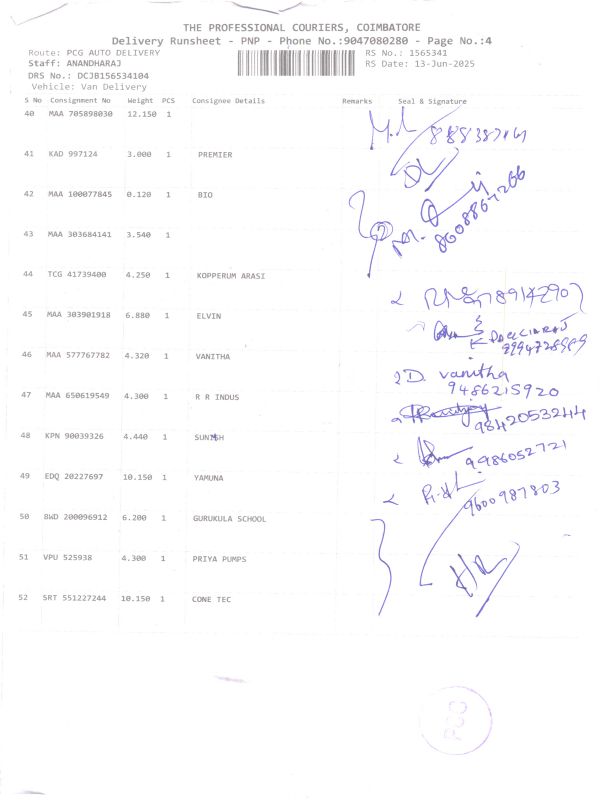 THE PROFESSIONAL COURIERS, COIMBATORE
Delivery Runsheet - PNP - Phone No.:9047080280 - Page No.:4
Route: PCG AUTO DELIVERY RS No.: 1565341
Staff: ANANDHARAJ RS Date: 13-Jun-2025
DRS No.: DCJB156534104
Vehicle: Van Delivery
S No Consignment No Weight PCS Consignee Details Remarks Seal & Signature
40 MAA 705898030 12.150 1
41 KAD 997124 3.000 1 PREMIER
42 MAA 100077845 0.120 1 BIO
8608864266
43 MAA 303684141 3.540 1
44 TCG 41739400 4.250 1 KOPPERUM ARASI
45 MAA 303901918 6.880 1 ELVIN
46 MAA 577767782 4.320 1 VANITHA
D. vanitha
9486215920
47 MAA 650619549 4.300 1 R R INDUS
9842053244
48 KPN 90039326 4.440 1
9986052721
49 EDQ 20227697 10.150 1 YAMUNA
9600987803
50 BWD 200096912 6.200 1 GURUKULA SCHOOL
51 VPU 525938 4.300 1 PRIYA PUMPS
52 SRT 551227244 10.150 1 CONE TEC
PCG